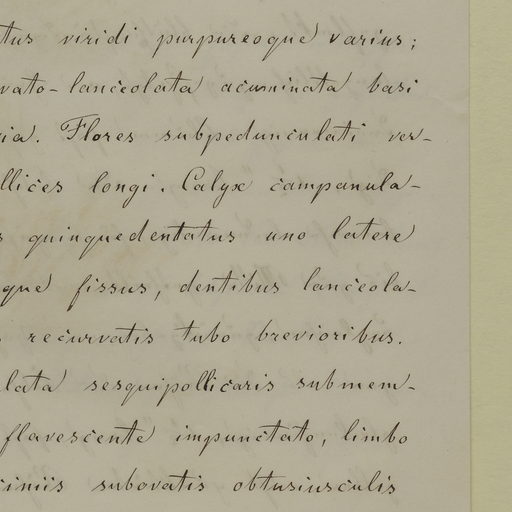 tus viridi purpureoque varius;
vato-lanceolata acuminata basi
ia. Flores subpedunculati ver-
llices longi. Calyx campanula-
s quinquedentatus uno latere
que fissus, dentibus lanceola-
recurvatis tubo brevioribus.
lata sesquipollicaris submem-
flavescente impunctato, limbo
ciniis subovatis obtusiusculis